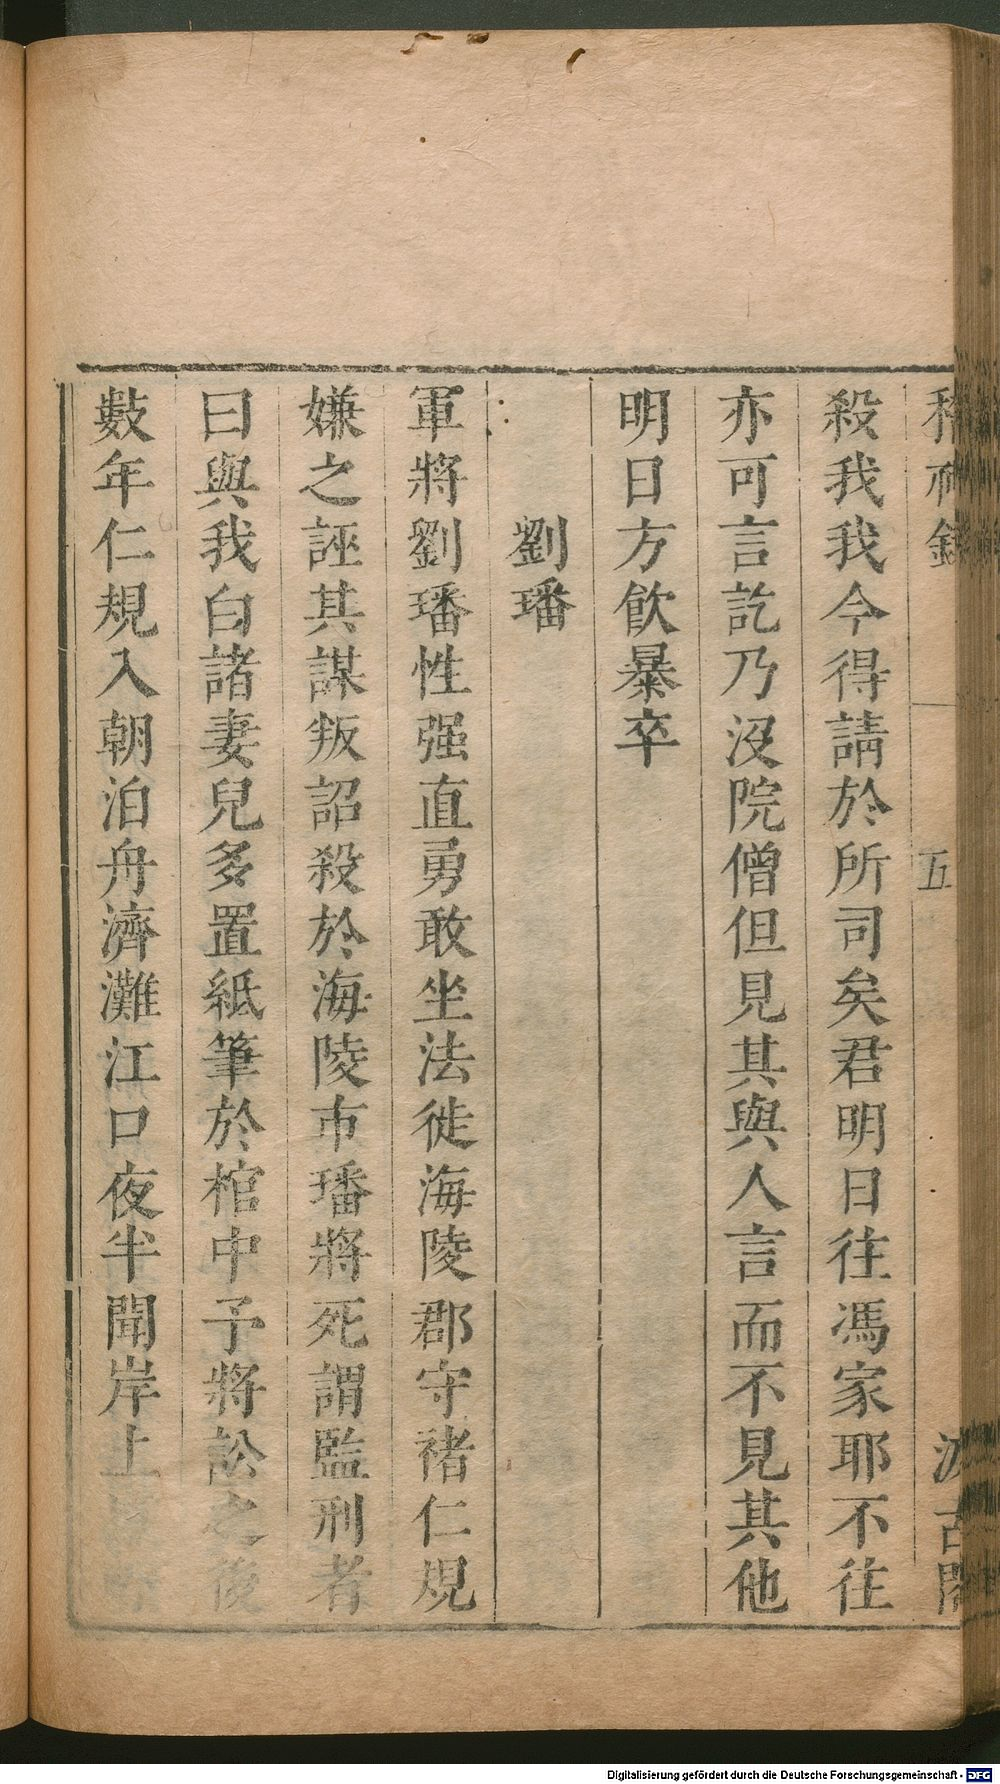 稽神錄 五 汲古閣
殺我我今得請於所司矣君明日往馮家耶不往
亦可言訖乃沒院僧但見其與人言而不見其他
明日方飮暴卒
劉璠
軍將劉璠性强直勇敢坐法徙海陵郡守褚仁規
嫌之誣其謀叛詔殺於海陵市璠將死謂監刑者
曰與我白諸妻兒多置紙筆於棺中予將訟之後
數年仁規入朝泊舟濟灘江口夜半聞岸上
Digitalisierung gefördert durch die Deutsche Forschungsgemeinschaft - DFG